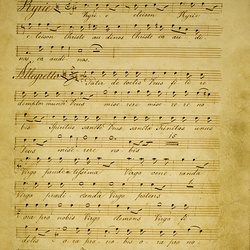 Kyrie
Kyrie e leison Kyrie
e leison Christe au di nos Christe ex au di
nos ex audi nos.
Allegretto
Pater de coelis Deus fi li re
demptor mundi Deus mise rere mise re re no
bis Spiritus sancte Deus sancta Trinitas unus
Deus mise rere no bis
Virgo prudentissima Virgo vene randa
Virgo predi canda Virgo potens
ora pro nobis Virgo clemens Virgo fi
delis o ra pro no bis o ra pro no